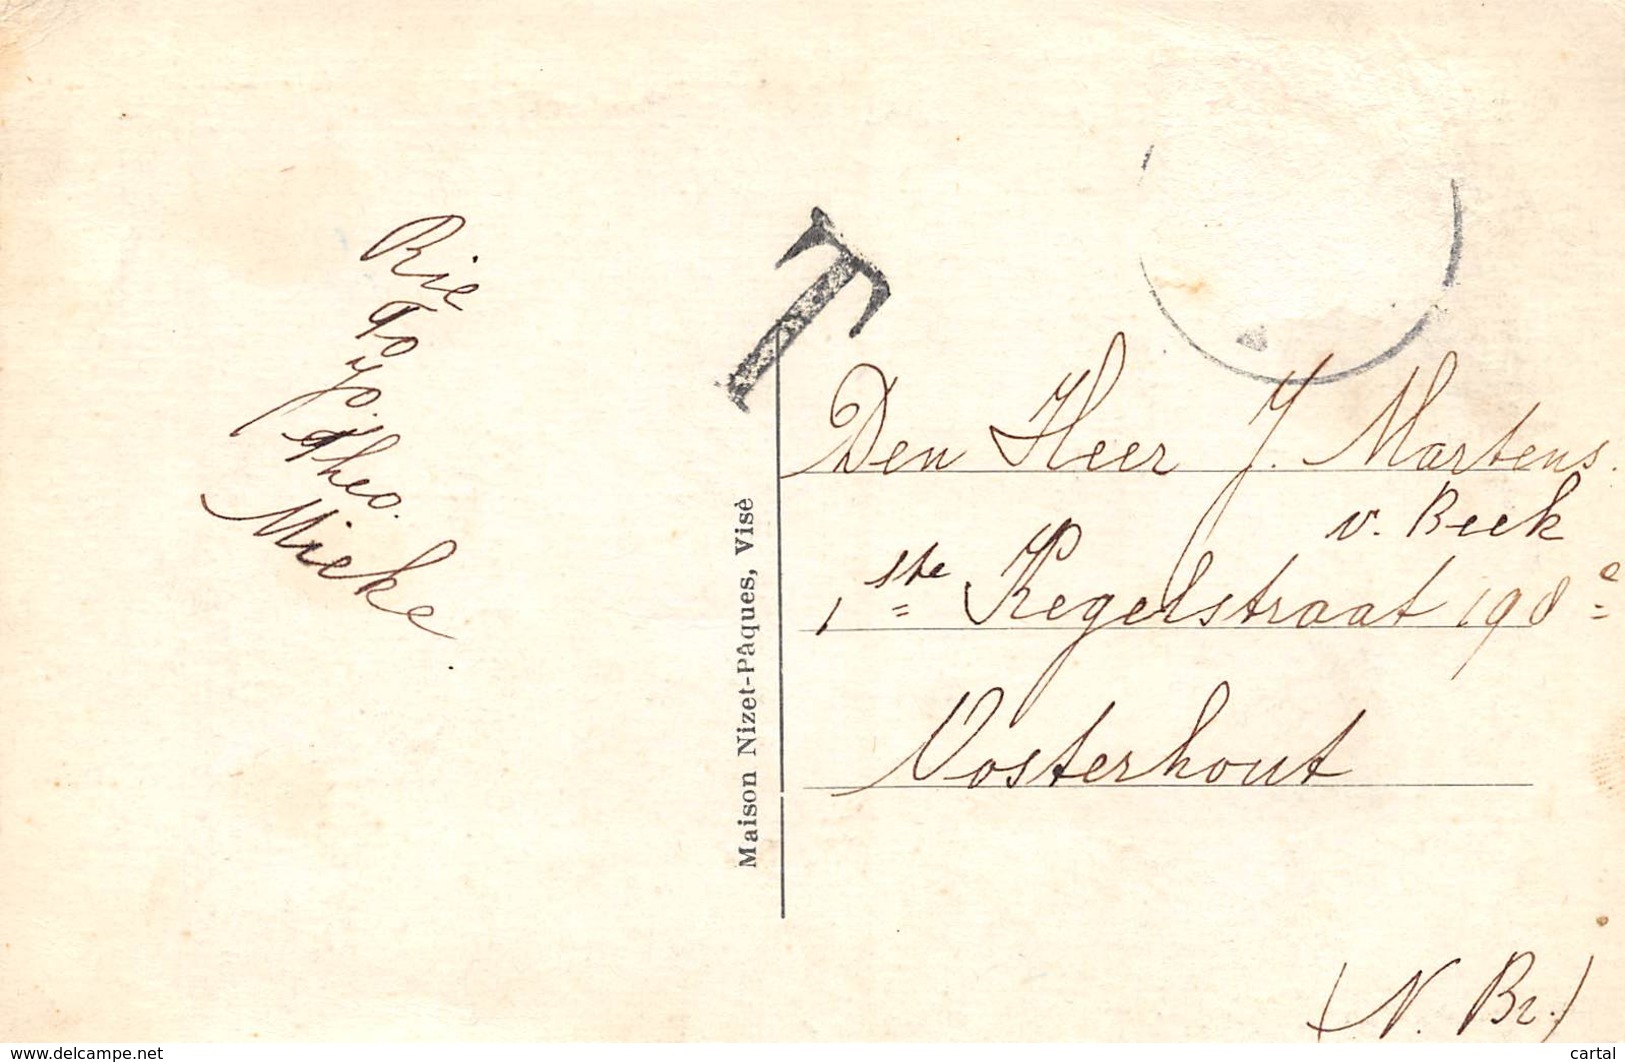 Rie
To
Jo.
Theo.
Mieke.
T
Maison Nizet-Pâques, Visè
Den Heer J. Martens.
v. Beek
1ste Kegelstraat 198e
Oosterhout
(N. Br.)
www.delcampe.net
cartal